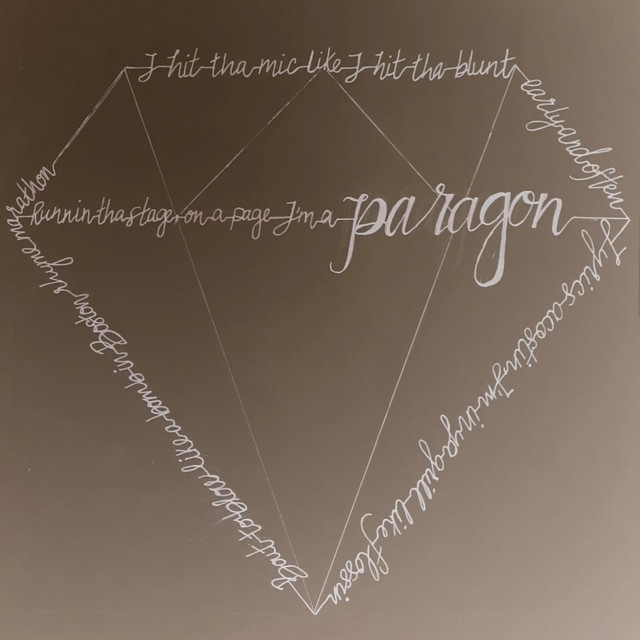 I hit tha mic like I hit tha blunt
early and often
Lyrics acosting I'm in yo grill like flossin
Bout to blow like a bomb in Boston
rhyme marathon
Runnin tha stage + on a page I'm a paragon